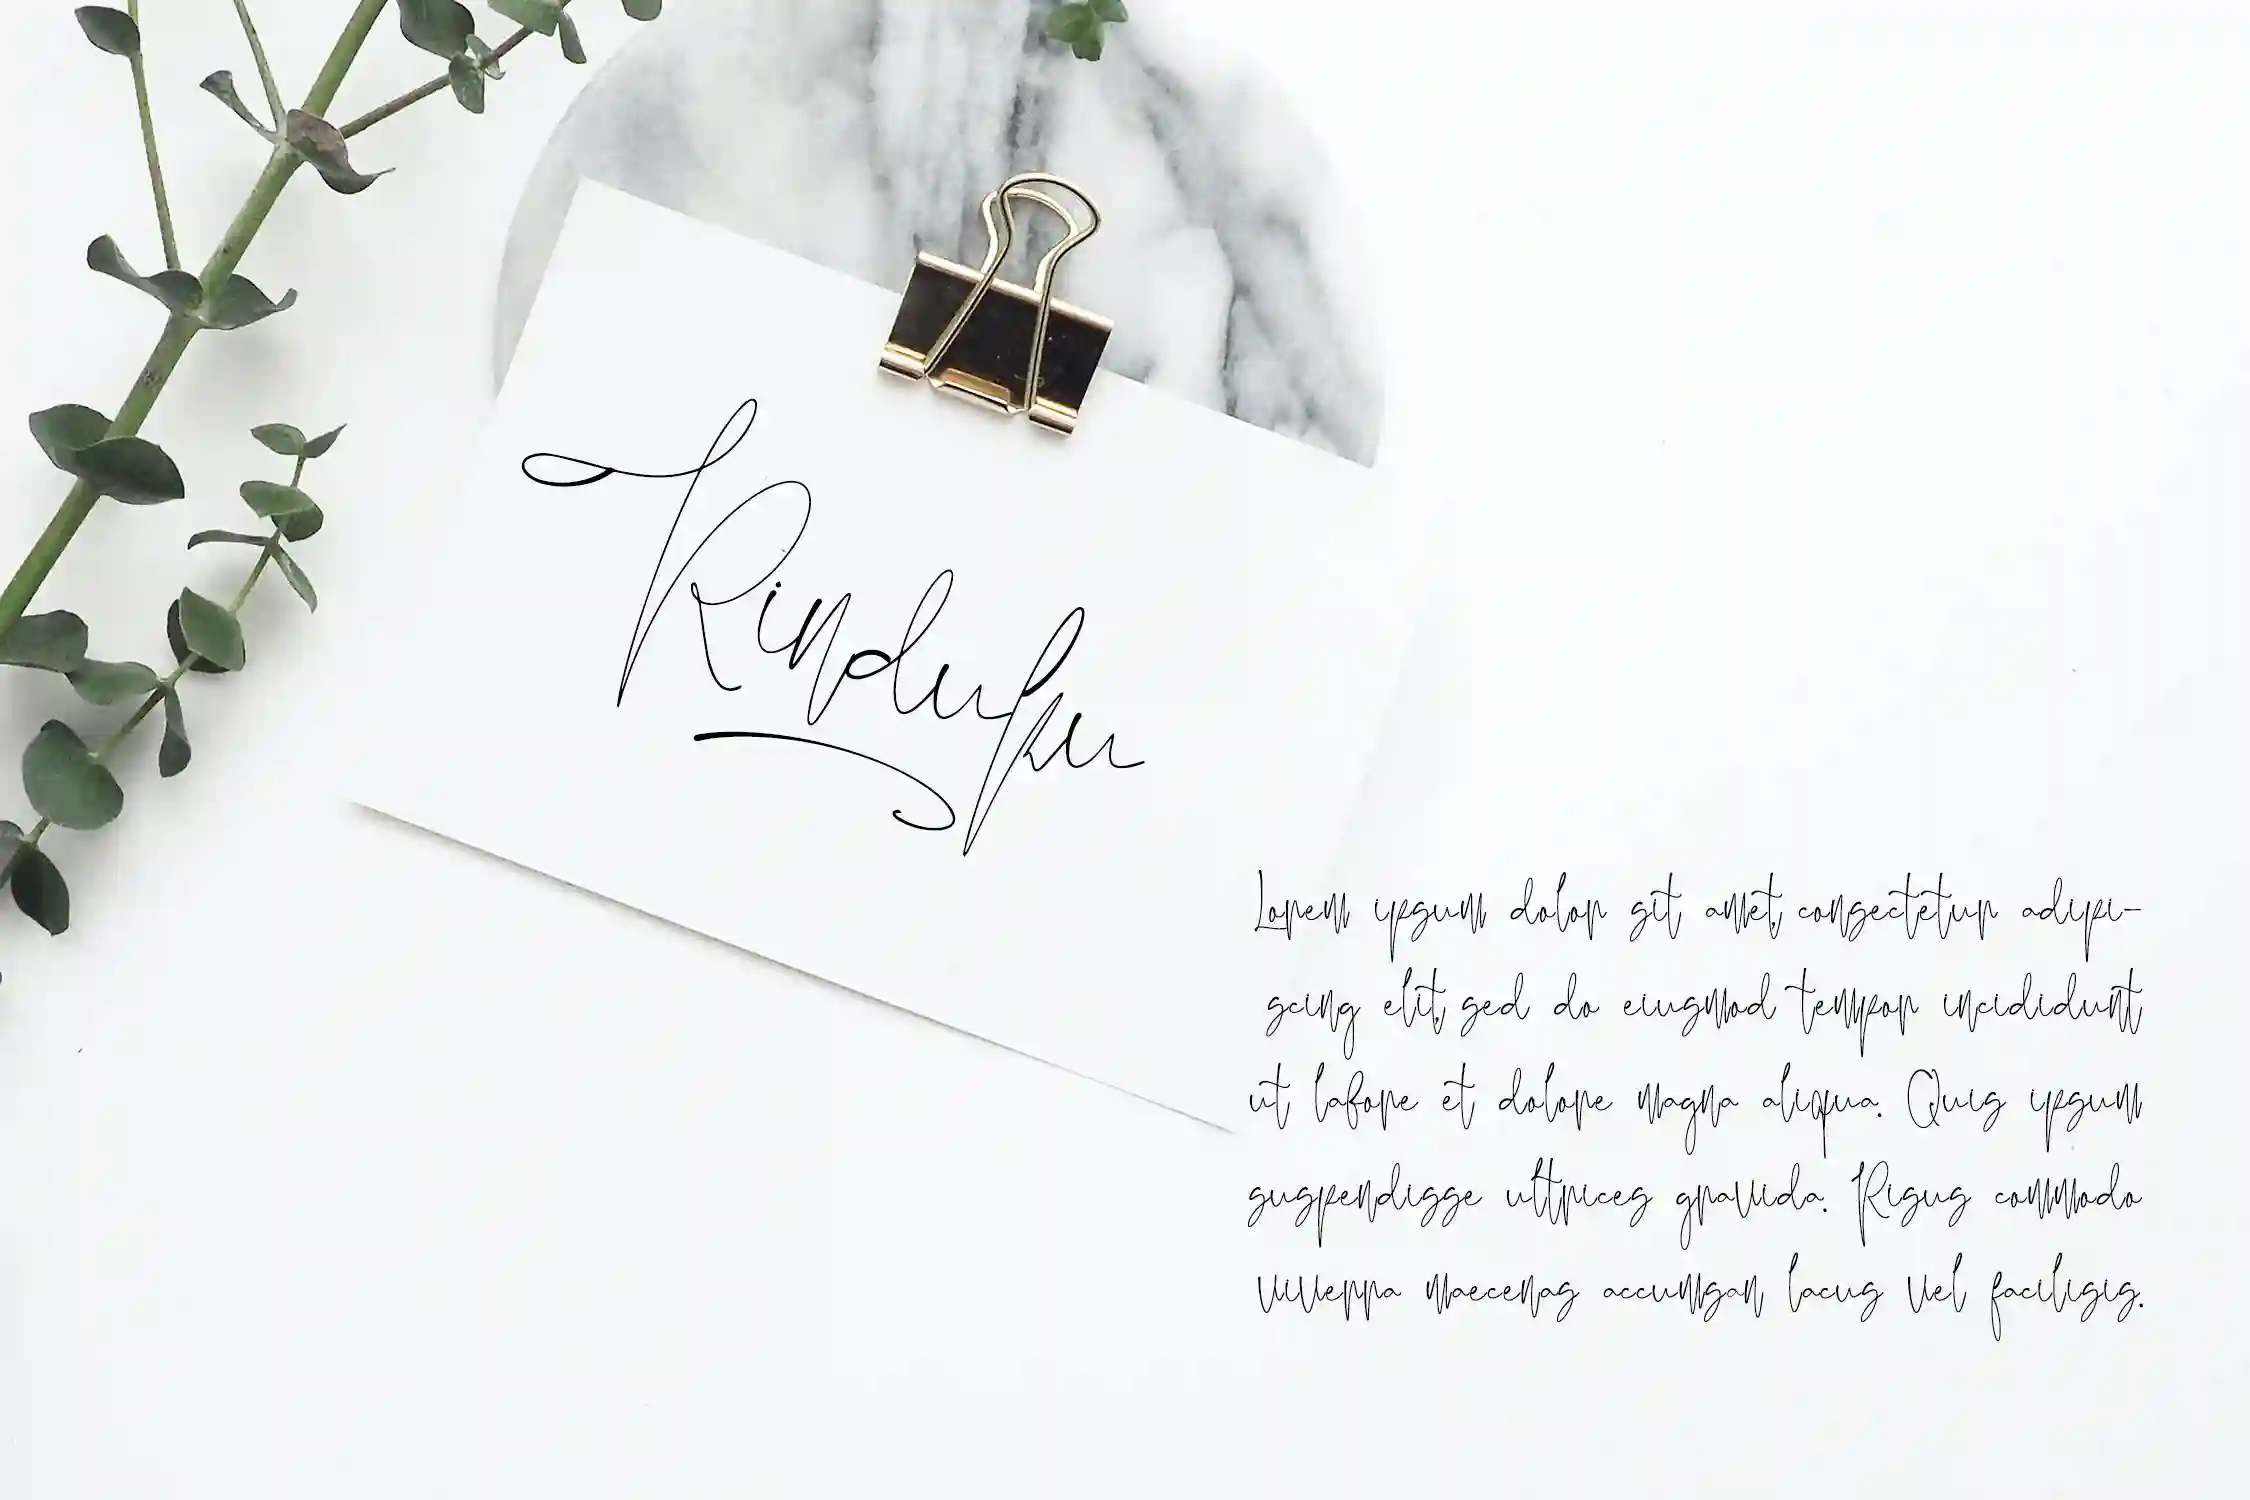 Rinduku
Lorem ipsum dolor sit amet, consectetur adipi-
scing elit, sed do eiusmod tempor incididunt
ut labore et dolore magna aliqua. Quis ipsum
suspendisse ultrices gravida. Risus commodo
viverra maecenas accumsan lacus vel facilisis.